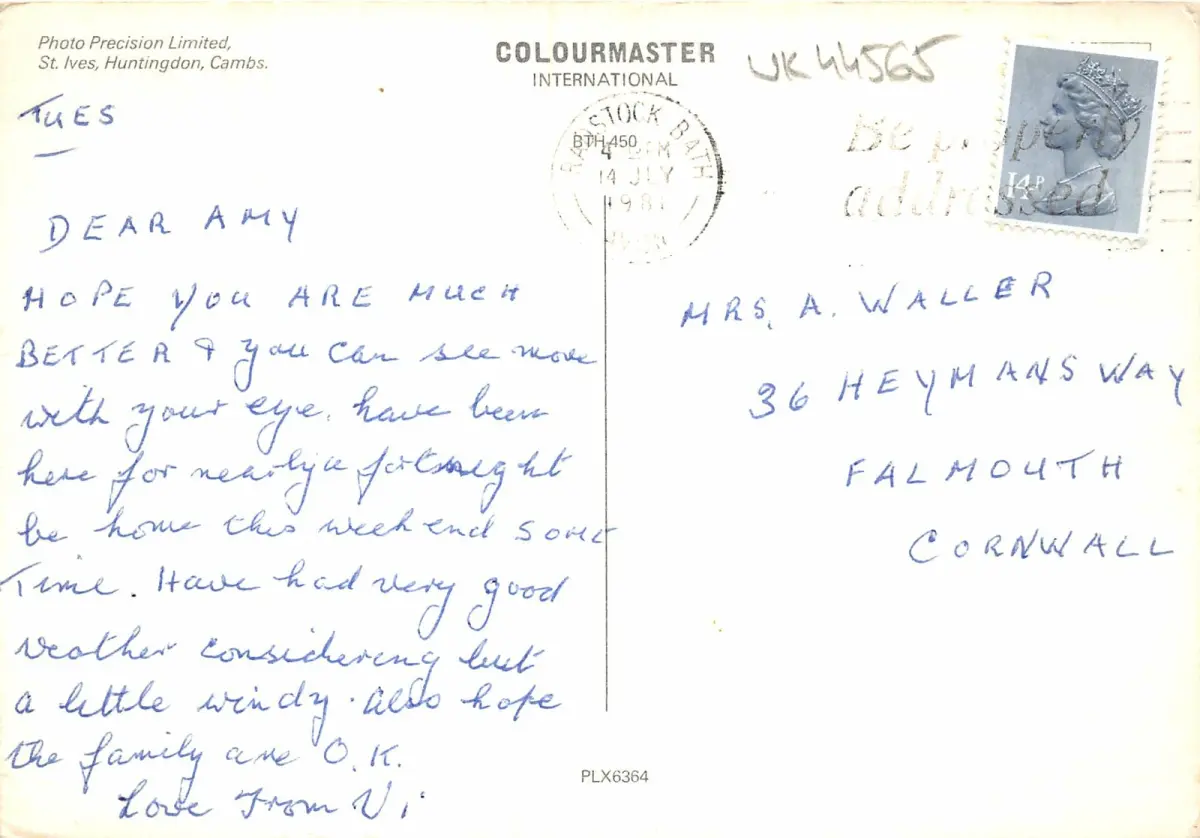 Photo Precision Limited,
St. Ives, Huntingdon, Cambs.
COLOURMASTER
INTERNATIONAL
UK44565
TUES
RADSTOCK BATH
BTH 450
4 PM
14 JLY
1981
Be properly
addressed
14P
DEAR AMY
HOPE YOU ARE MUCH
BETTER & you can see more
with your eye. have been
here for nearly a fortnight
be home this weekend SOME
Time. Have had very good
weather considering but
a little windy. Also hope
the family are O.K.
Love From Vi
MRS. A. WALLER
36 HEYMANS WAY
FALMOUTH
CORNWALL
PLX6364